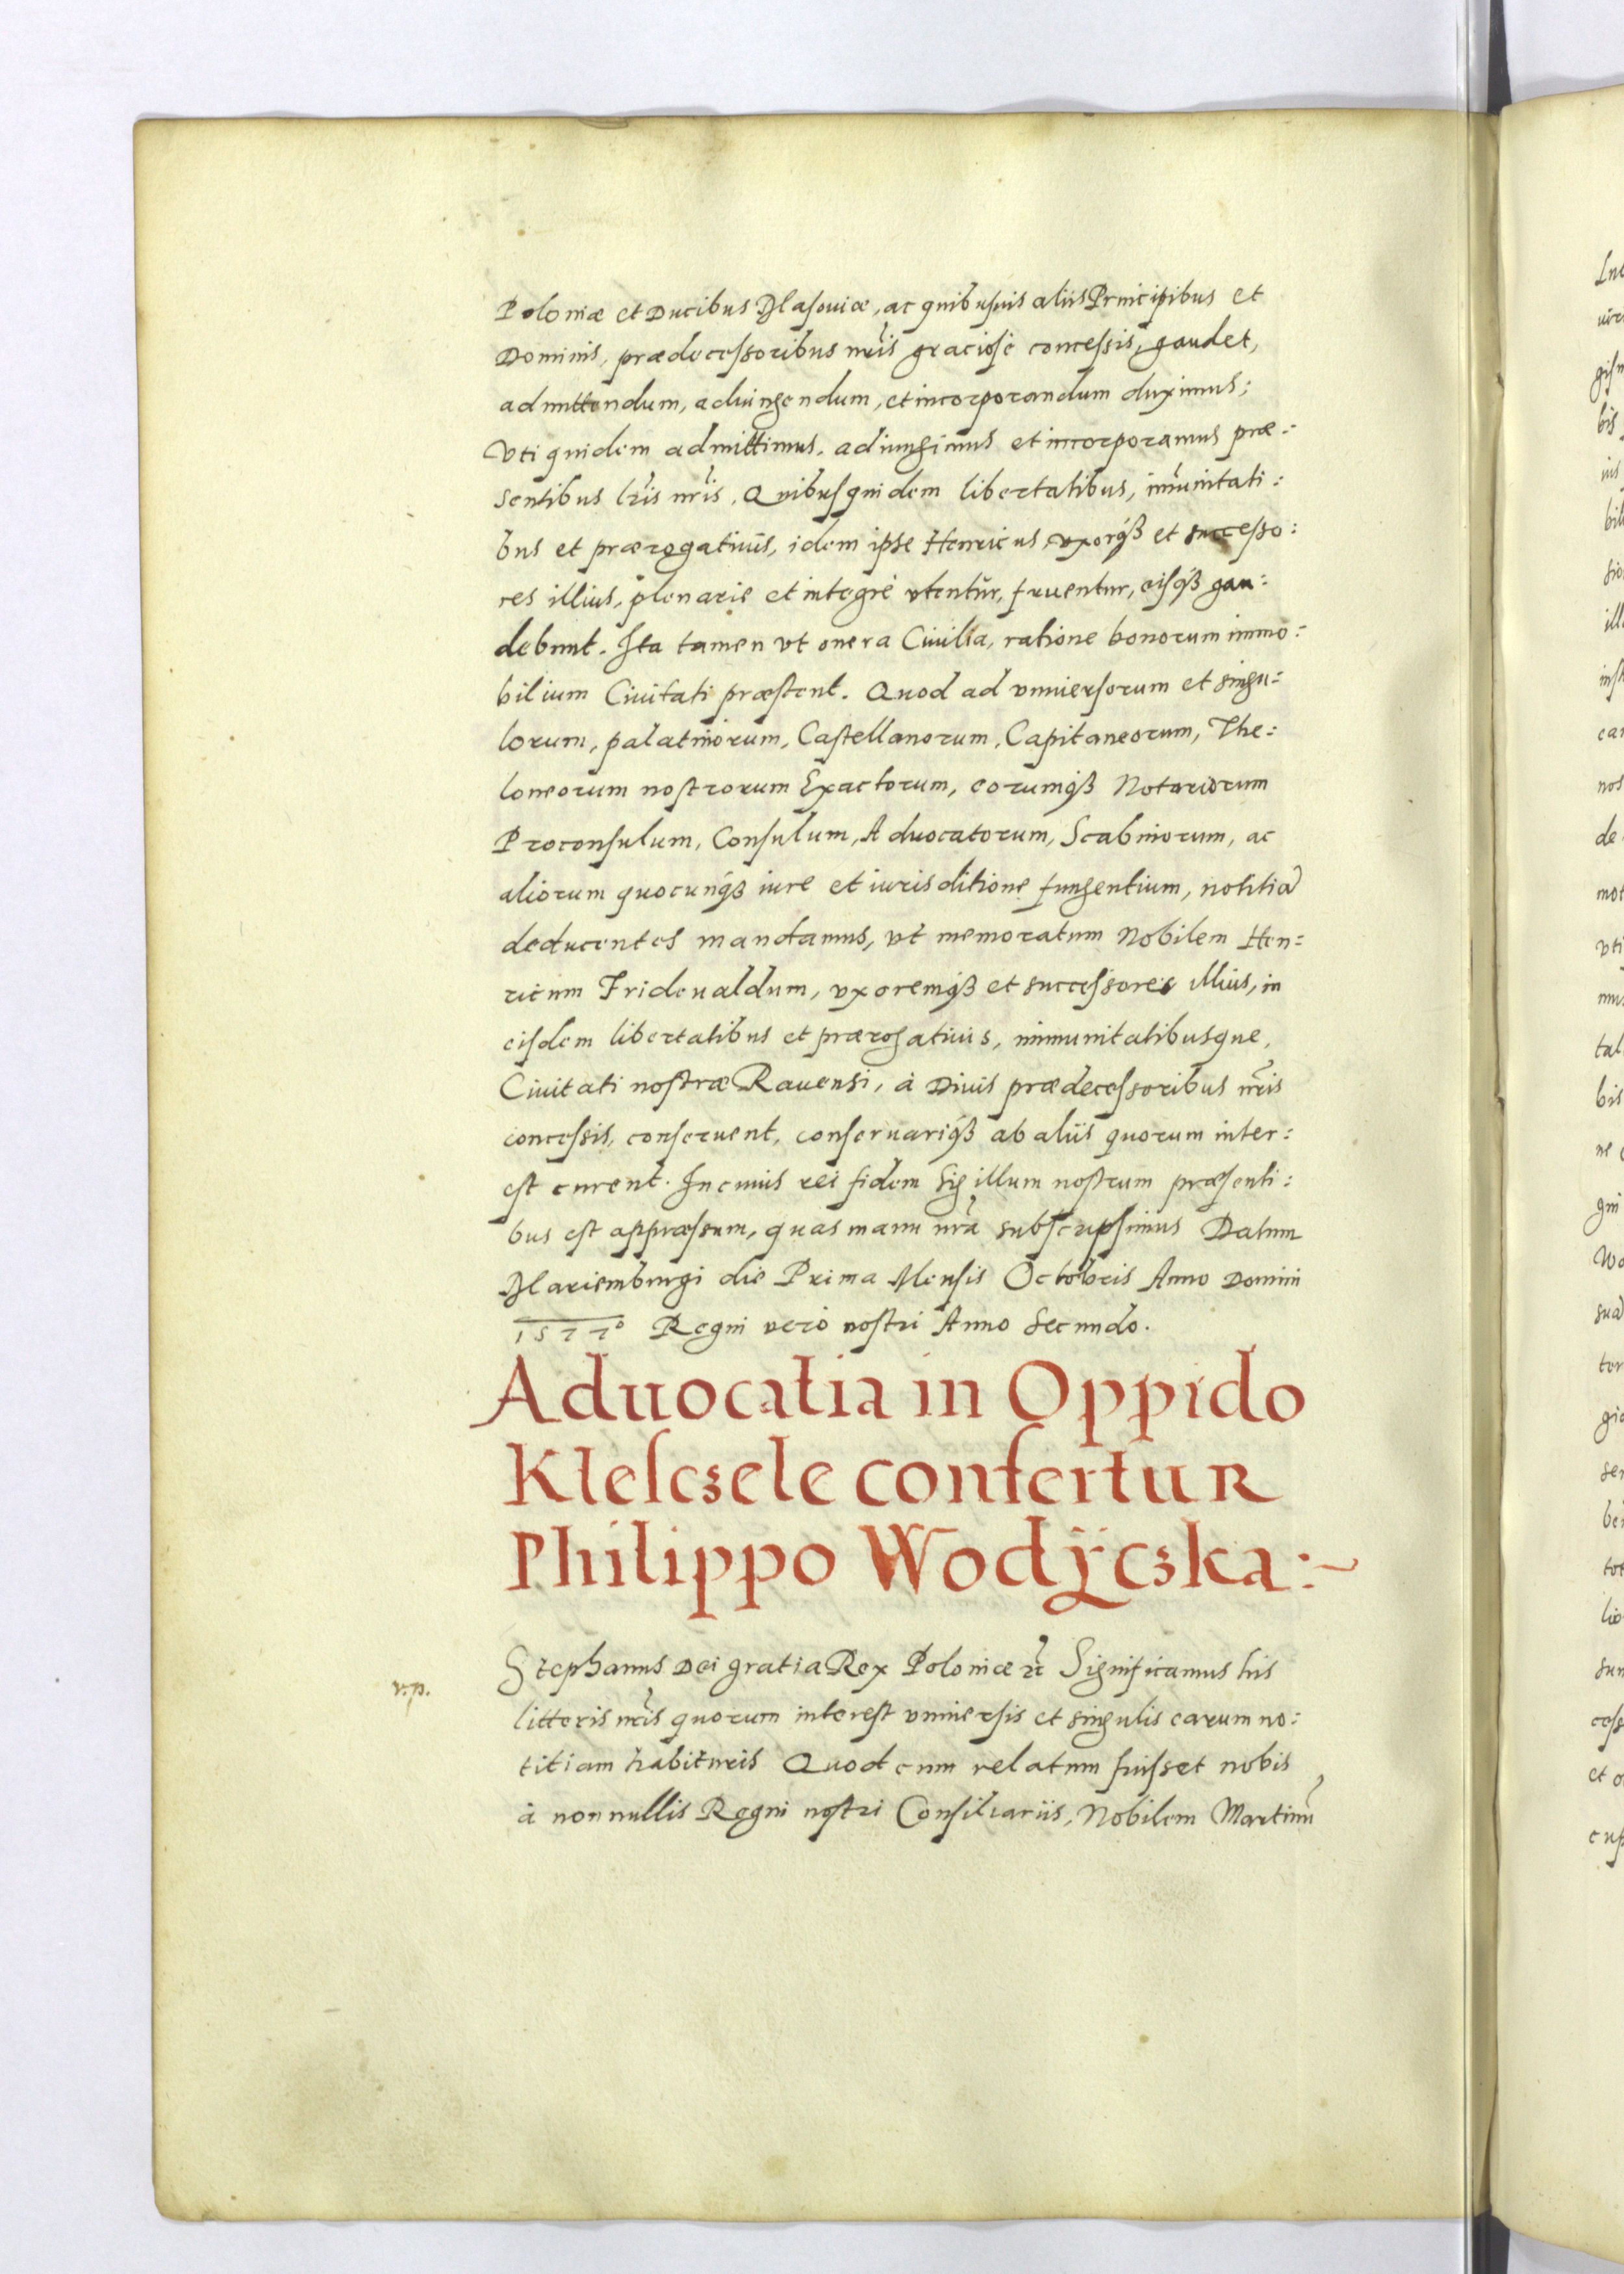 Poloniæ et Ducibus Masouiæ, ac quibusuis aliis Principibus et
Dominis, prædecessoribus nr̃is graciosè concessis, gaudet,
admittendum, adiungendum, et incorporandum duximus;
Vti quidem admittimus, adiungimus et incorporamus præ:
sentibus lr̃is nr̃is. Quibusquidem libertatibus, im̃unitati:
bus et prærogatiuis, idem ipse Henricus vxorqꝫ et successo:
res illius, plenarie et integrè vtentur, fruentur, eisqꝫ gau:
debunt. Ita tamen vt onera Ciuilia, ratione bonorum immo:
bilium Ciuitati præstent. Quod ad vniuersorum et singu:
lorum, palatinorum, Castellanorum, Capitaneorum, The:
loneorum nostrorum Exactorum, eorumqꝫ Notariorum
Proconsulum, Consulum, Aduocatorum, Scabinorum, ac
aliorum quocunqꝫ iure et iurisditione fungentium, notitiã
deducentes mandamus, vt memoratum Nobilem Hen:
ricum Frideualdum, vxoremqꝫ et successores illius, in
eisdem libertatibus et prærogatiuis, immunitatibusque,
Ciuitati nostræ Rauensi, à Diuis prædecessoribus nr̃is
concessis, conseruent, conseruariqꝫ ab aliis quorum inter:
est curent. In cuius rei fidem Sigillum nostrum præsenti:
bus est appræssum, quas manu nr̃a subscripsimus Datum
Mariemburgi die Prima Mensis Octobris Anno Domini
1577° Regni verò nostri Anno Secundo.
Aduocatia in Oppido
Klesczele confertur
Philippo Wodÿczka:~
Stephanus Dei gratia Rex Poloniæ ꝛc̃ Significamus his
v.p.
litteris nr̃is quorum interest vniuersis et singulis earum no:
titiam habituris Quod cum relatum fuisset nobis
à nonnullis Regni nostri Consiliariis, Nobilem Martinũ